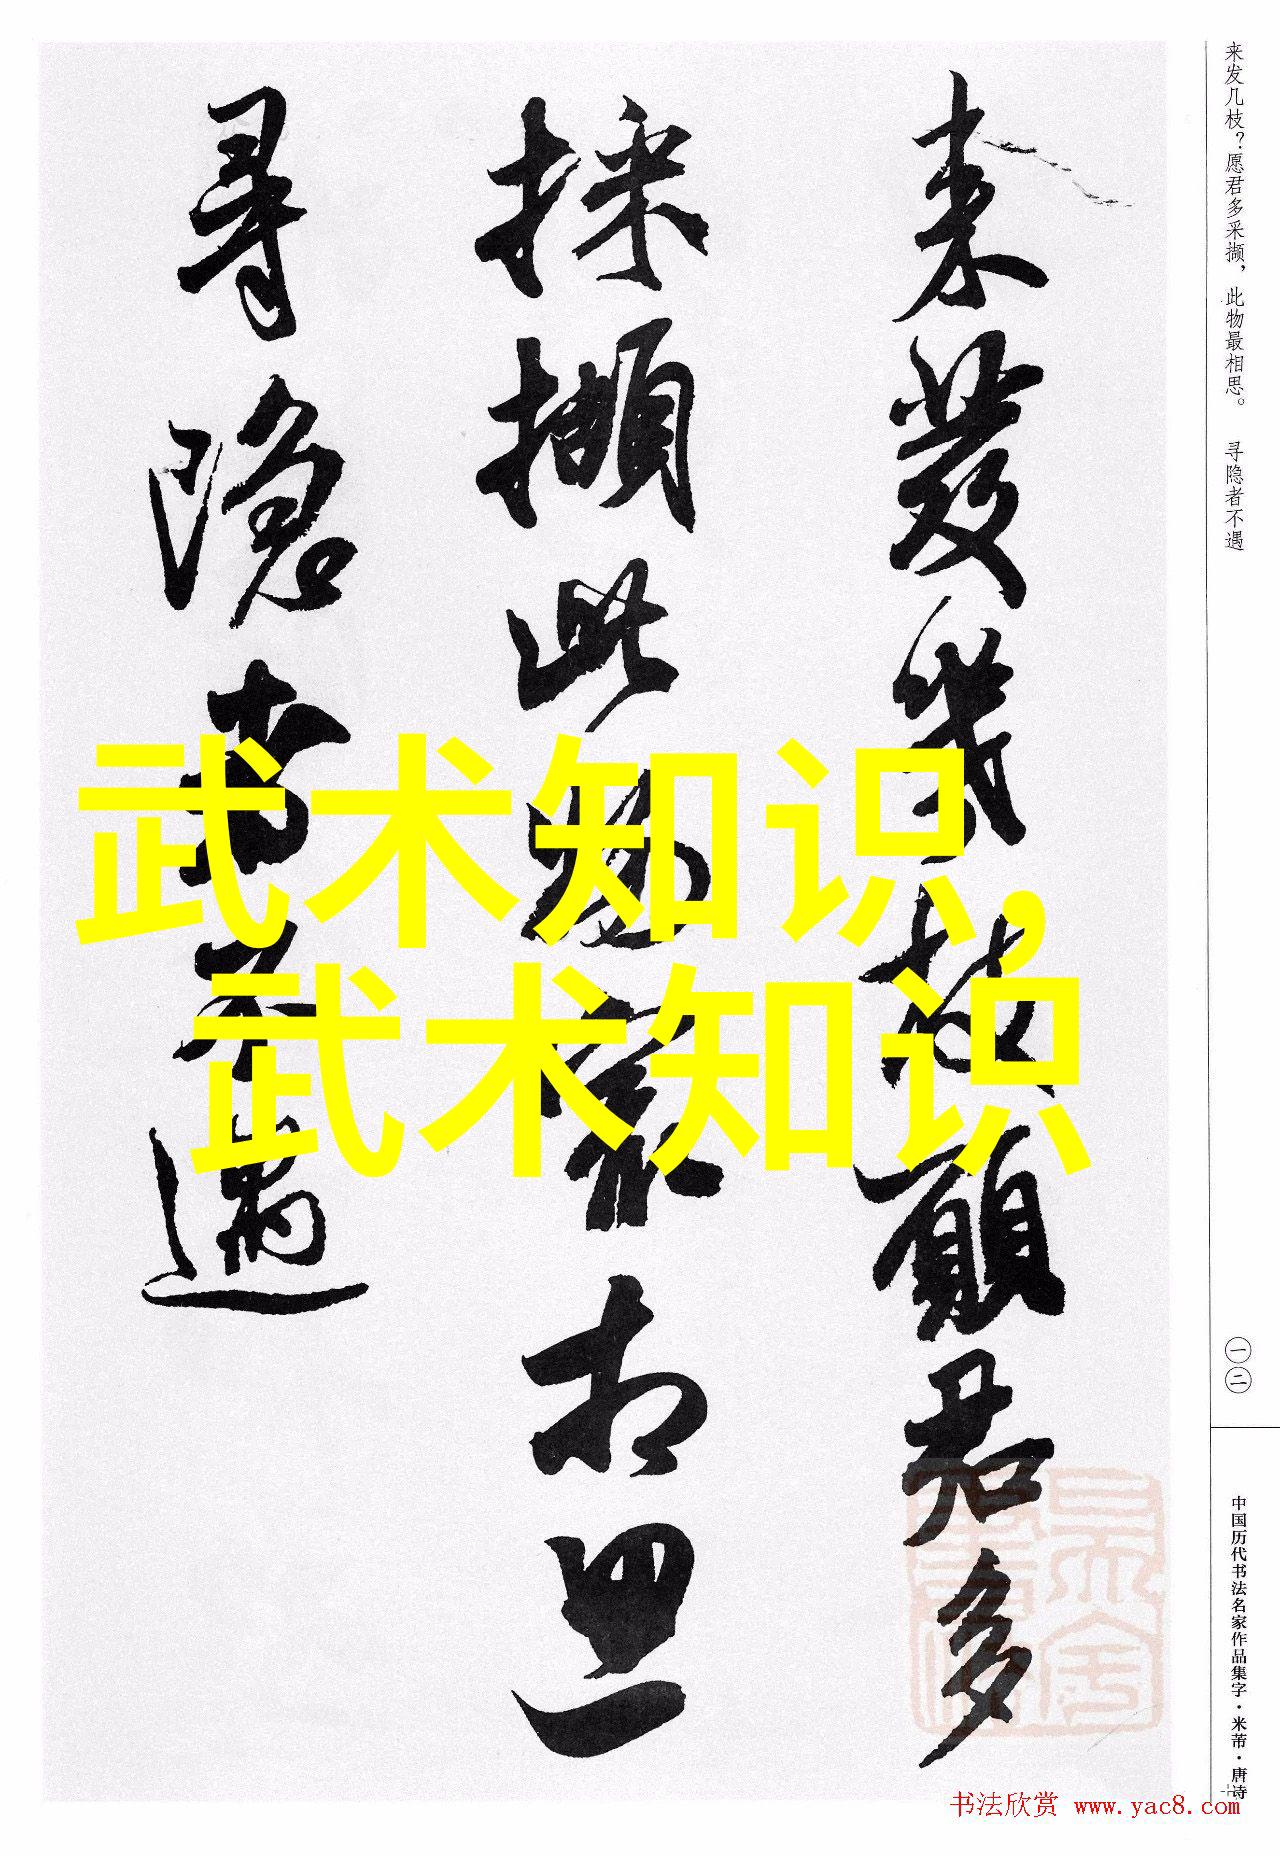 来发几枝？愿君多采撷，此物最相思。 寻隐者不遇
来發幾枝願君多
採擷此物最相思
尋隱者不遇
武术知识,
武术知识
一二
中国历代书法名家作品集字·米芾·唐诗
书法欣赏 www.yac8.com